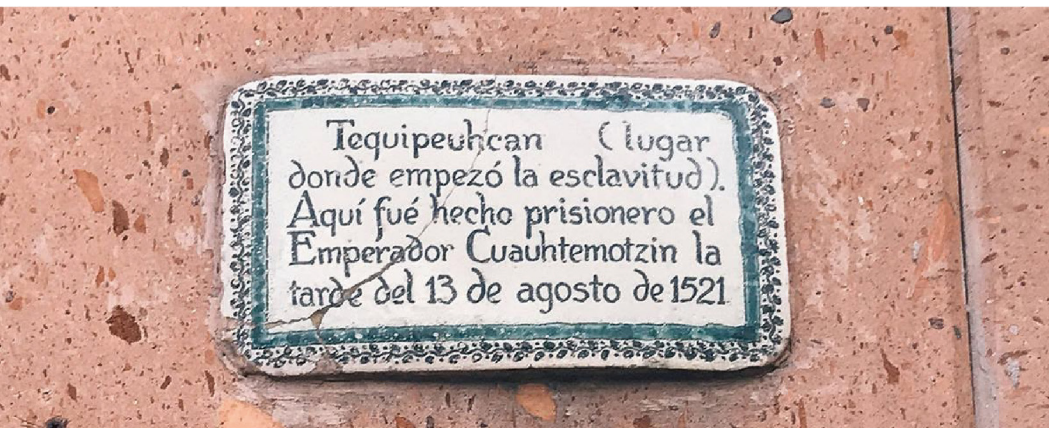 Tequipeuhcan ( lugar
donde empezó la esclavitud).
Aquí fué hecho prisionero el
Emperador Cuauhtemotzin la
tarde del 13 de agosto de 1521